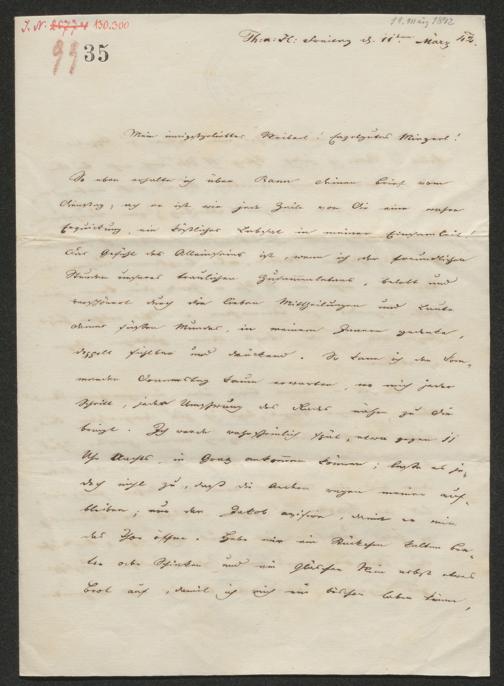 J. N. 26774 130.300
11. März 1842
99 35
Th. a. H. Freitag d. 11ten März 42.
Mein innigstgeliebtes Weiberl! Engelgutes Minzerl!
So eben erhalte ich über Rann deinen Brief vom
Dienstag, ach er ist wie jede Zeile von Dir eine wahre
Erquickung, ein köstliches Labsal in meiner Einsamkeit!
Das Gefühl des Alleinseins ist, wenn ich der freundlichen
Stunden unseres traulichen Zusammenlebens, belebt und
verschönert durch die lieben Mittheilungen und Laute
deines süßen Mundes, in meinem Innern gedenke,
doppelt fühlbar und drückend. So kann ich den kom-
menden Donnerstag kaum erwarten, wo mich jeder
Schritt, jeder Umschwung des Rades näher zu dir
bringt. Ich werde wahrscheinlich spät, etwa gegen 11
Uhr Nachts, in Graz ankommen können; lasse es je-
doch nicht zu, daß die wegen meiner auf-
bleiben; nur der Jakob, damit er mir
das Thor öffne. Hebe mir ein Stückchen kalten Bra-
ten oder Schinken und ein Gläschen Wein nebst etwas
Brot auf, damit ich mich ein bischen laben könne,